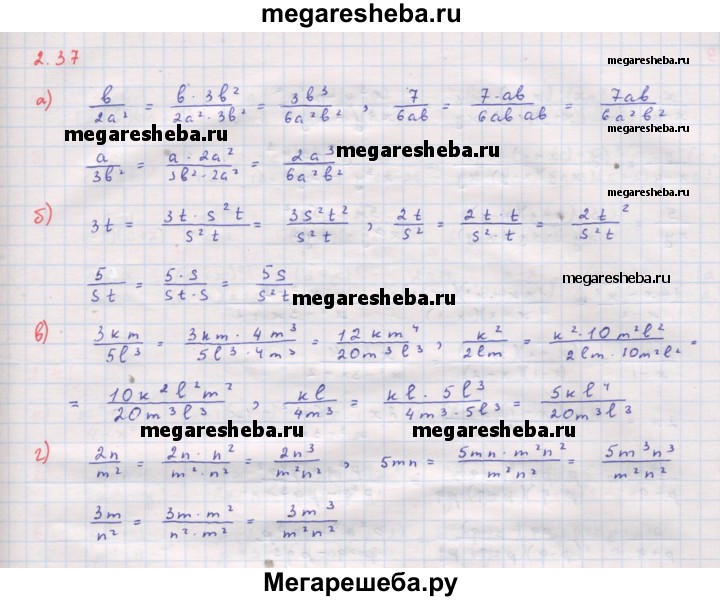 megaresheba.ru
2.37 megaresheba.ru
а) b/2a² = b·3b²/2a²·3b² = 3b³/6a²b² , 7/6ab = 7·ab/6ab·ab = 7ab/6a²b²
megaresheba.ru megaresheba.ru
a/3b² = a·2a²/3b²·2a² = 2a³/6a²b²
megaresheba.ru
б) 3t = 3t·s²t/s²t = 3s²t²/s²t , 2t/s² = 2t·t/s²·t = 2t²/s²t
5/st = 5·s/st·s = 5s/s²t
megaresheba.ru megaresheba.ru
в) 3км/5l³ = 3км·4m³/5l³·4m³ = 12км⁴/20m³l³ , к²/2lm = к²·10m²l²/2lm·10m²l² =
= 10к²l²m²/20m³l³ , кl/4m³ = кl·5l³/4m³·5l³ = 5кl⁴/20m³l³
megaresheba.ru megaresheba.ru
г) 2n/m² = 2n·n²/m²·n² = 2n³/m²n² , 5mn = 5mn·m²n²/m²n² = 5m³n³/m²n²
3m/n² = 3m·m²/n²·m² = 3m³/m²n²
Мегарешеба.ру